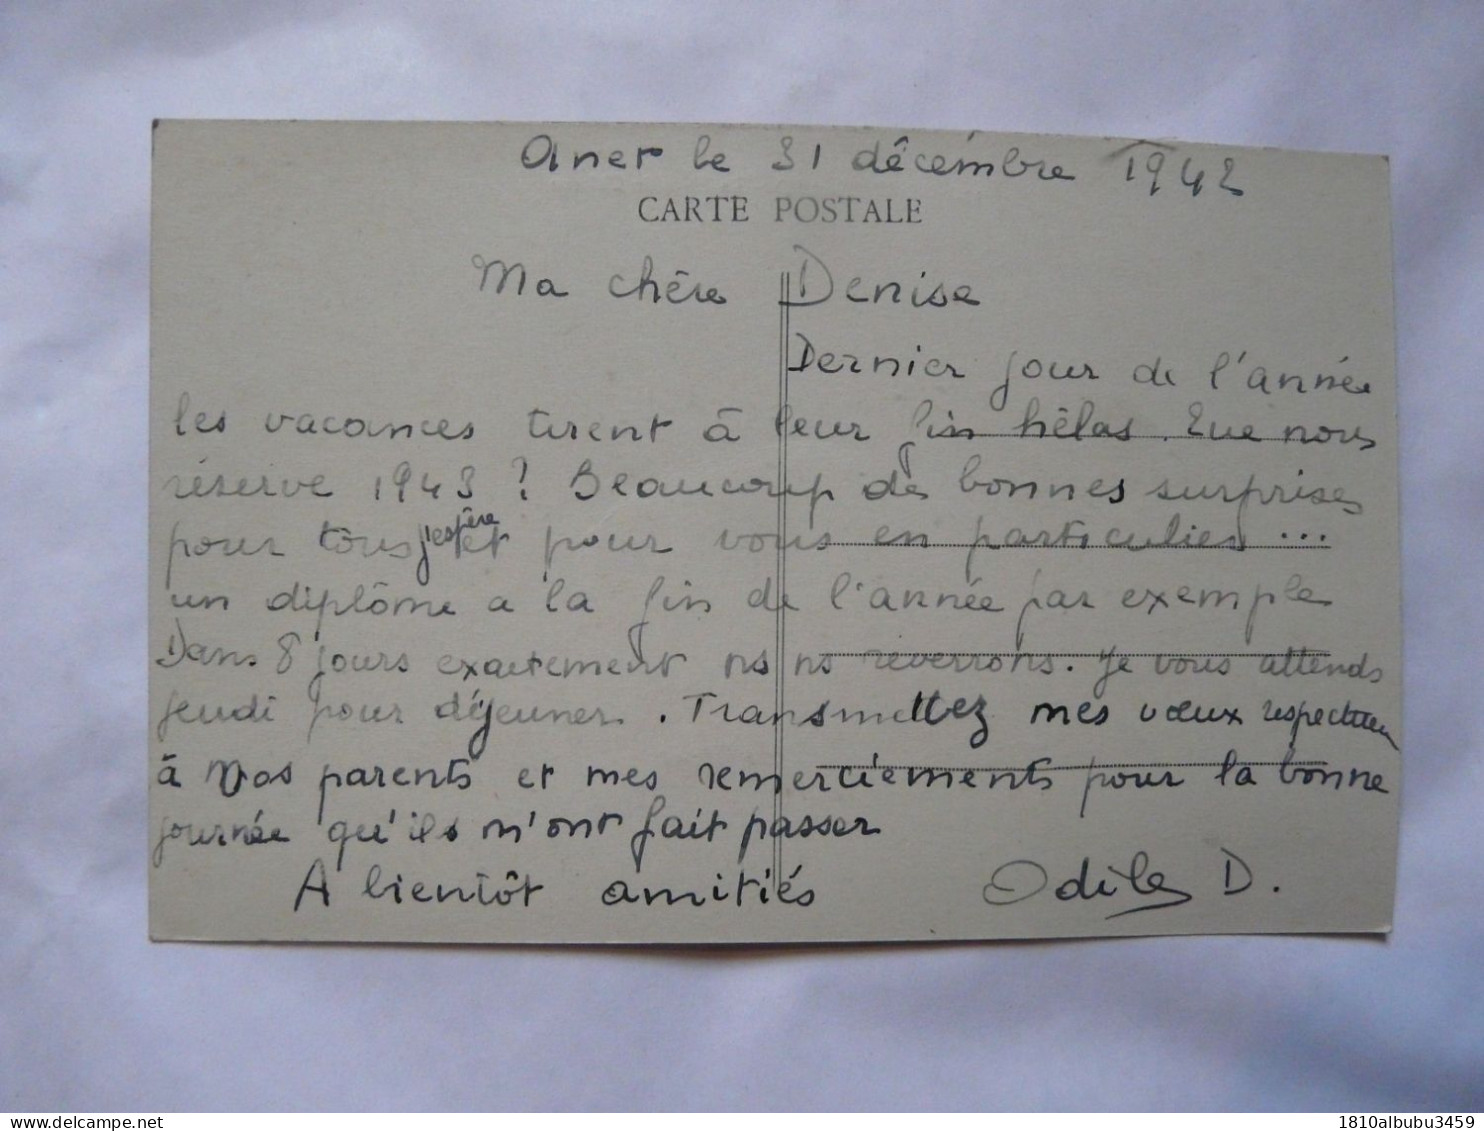 Anet le 31 décembre 1942
CARTE POSTALE
Ma chère Denise
Dernier jour de l'année
les vacances tirent à leur fin hélas. Que nous
réserve 1943 ? Beaucoup de bonnes surprises
pour tous j'espère et pour vous en particulier ...
un diplôme a la fin de l'année par exemple
Dans 8 jours exactement ns ns reverrons. Je vous attends
jeudi pour déjeuner. Transmettez mes vœux respectueux
à vos parents et mes remerciements pour la bonne
journée qu'ils m'ont fait passer
A bientôt amitiés Odile D.
delcampe.net
1810albubu3459